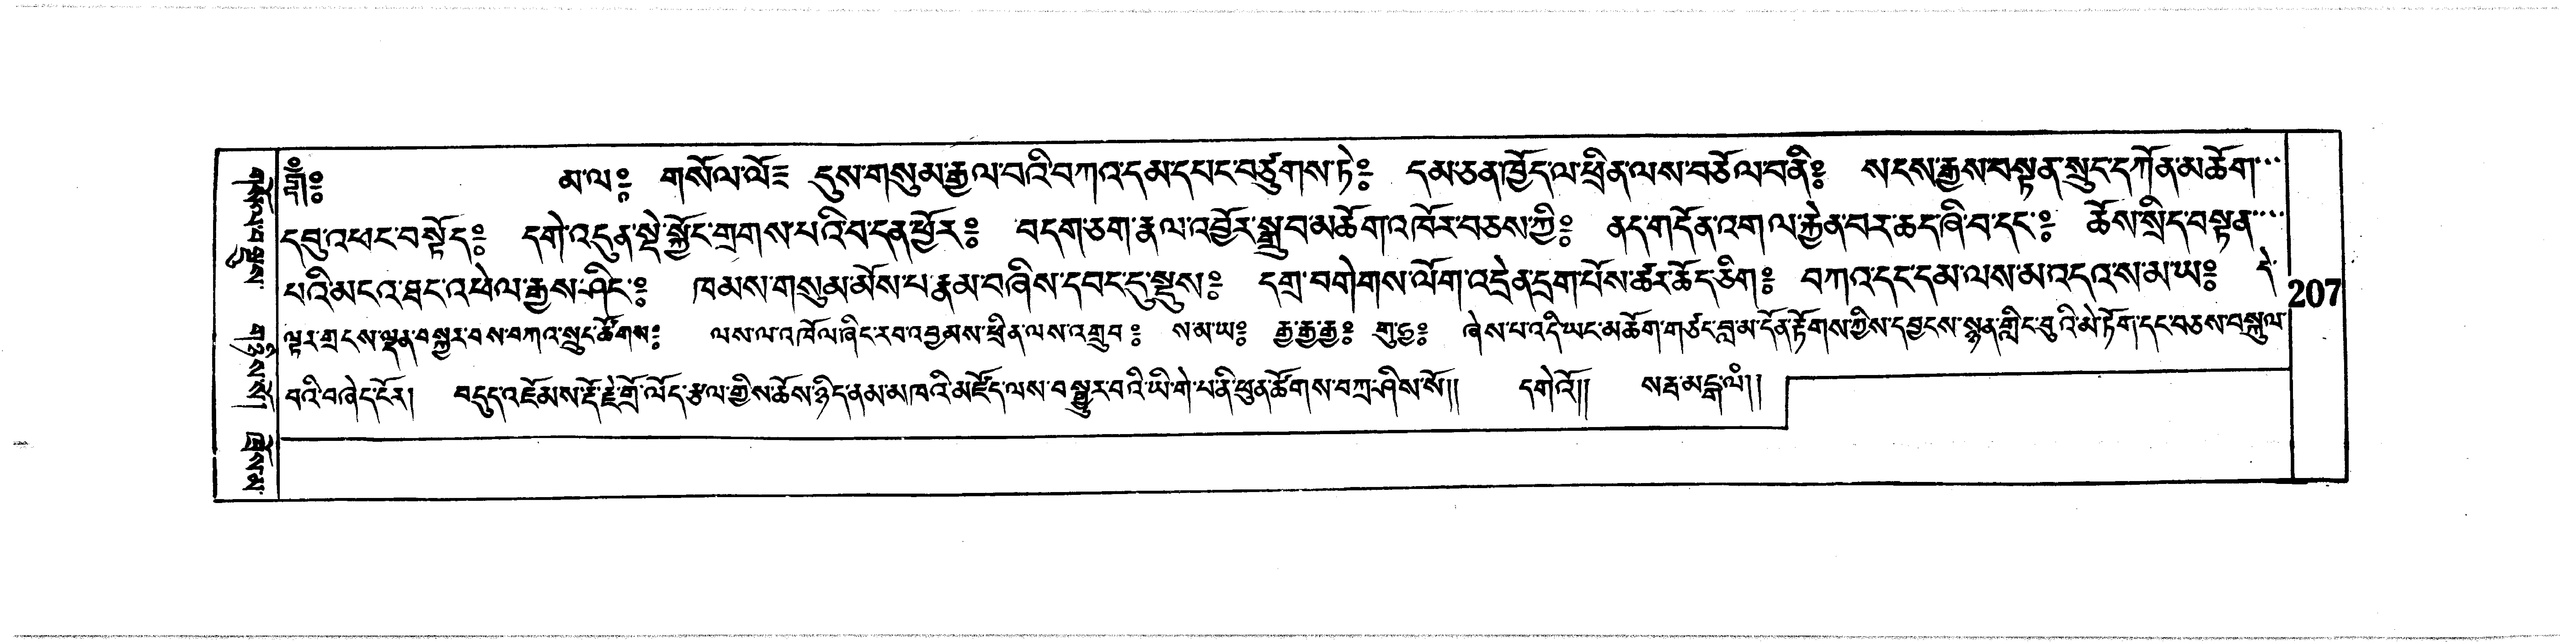 ༄༅༔ མ་ལ༔ གསོལ་ལོ༔ དུས་གསུམ་རྒྱལ་བའི་བཀའ་དམ་དཔང་བཙུགས་ཏེ༔ དམ་ཅན་ཁྱོད་ལ་ཕྲིན་ལས་བཅོལ་བནི༔ སངས་རྒྱས་བསྟན་སྲུང་དཀོན་མཆོག་
དབུ་འཕང་བསྟོད༔ དགེ་འདུན་སྡེ་སྐྱོང་གྲགས་པའི་བ་དན་ཕྱོར༔ བདག་ཅག་རྣལ་འབྱོར་སྒྲུབ་མཆོག་འཁོར་བཅས་ཀྱི༔ ནད་གདོན་འགལ་རྐྱེན་བར་ཆད་ཞི་བ་དང་༔ ཆོས་སྲིད་བསྟན་
པའི་མངའ་ཐང་འཕེལ་རྒྱས་ཤིང་༔ ཁམས་གསུམ་མོས་པ་རྣམ་བཞིས་དབང་དུ་སྡུས༔ དགྲ་བགེགས་ལོག་འདྲེན་དྲག་པོས་ཚར་ཆོད་ཅིག༔ བཀའ་དང་དམ་ལས་མ་འདའ་ས་མ་ཡ༔ དེ་
ལྟར་གྲངས་ལྡན་བསྐྱར་བས་བཀའ་སྲུང་ཚོགས༔ ལས་ལ་འཁོལ་ཞིང་རབ་འབྱམས་ཕྲིན་ལས་འགྲུབ༔ ས་མ་ཡ༔ རྒྱ་རྒྱ་རྒྱ༔ གུ་ཧྱ༔ ཞེས་པ་འདི་ཡང་མཆོག་གཙང་བླ་མ་དོན་རྟོགས་ཀྱིས་དབྱངས་སྙན་གླིང་བུའི་མེ་ཏོག་དང་བཅས་བསྐུལ་
བའི་བཞེད་ངོར། བདུད་འཇོམས་རྡོ་རྗེ་གྲོ་ལོད་རྩལ་གྱིས་ཆོས་ཉིད་ནམ་མཁའི་མཛོད་ལས་བསྒྱུར་བའི་ཡི་གེ་པནི་ཕུན་ཚོགས་བཀྲ་ཤིས་སོ།། དགེའོ།། སརྦ་མངྒ་ལཾ།།
207